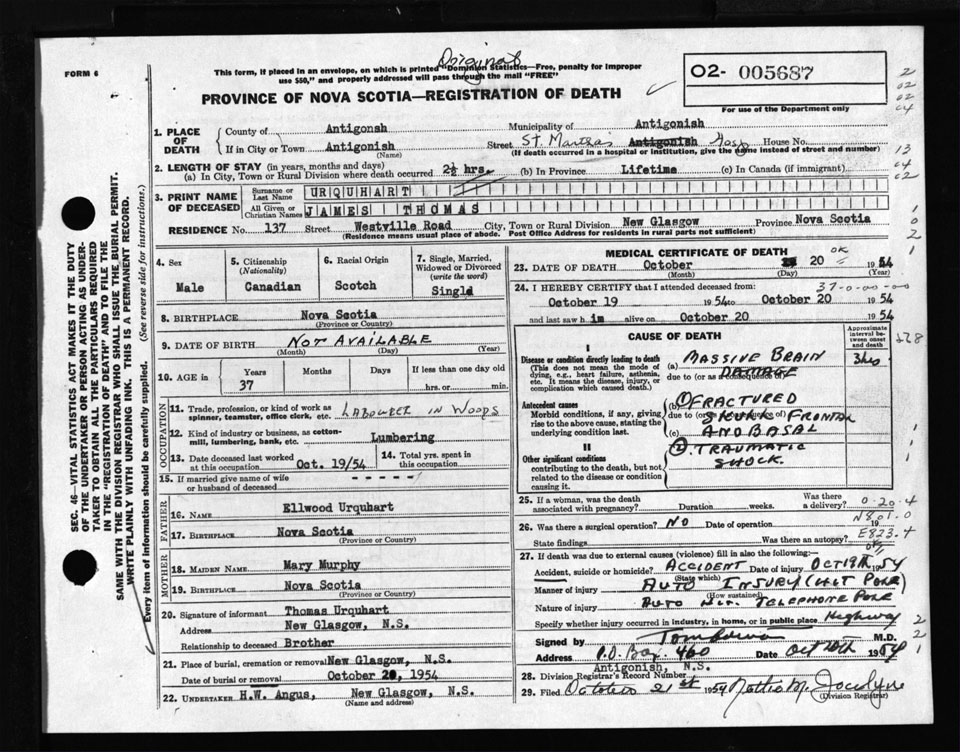 Original
FORM 6
This form, if placed in an envelope, on which is printed "Dominion Statistics—Free, penalty for improper
use $50," and properly addressed will pass through the mail "FREE"
O2- 005687
For use of the Department only
PROVINCE OF NOVA SCOTIA—REGISTRATION OF DEATH
1. PLACE OF DEATH
County of Antigonsh Municipality of Antigonish
If in City or Town Antigonish (Name) Street St. Martha's Antigonish Hosp House No.
(If death occurred in a hospital or institution, give the name instead of street and number)
2. LENGTH OF STAY (in years, months and days)
(a) In City, Town or Rural Division where death occurred 2½ hrs. (b) In Province Lifetime (c) In Canada (if immigrant)
3. PRINT NAME OF DECEASED
Surname or Last Name URQUHART
All Given or Christian Names JAMES THOMAS
RESIDENCE No. 137 Street Westville Road City, Town or Rural Division New Glasgow Province Nova Scotia
(Residence means usual place of abode. Post Office Address for residents in rural parts not sufficient)
4. Sex
Male
5. Citizenship (Nationality)
Canadian
6. Racial Origin
Scotch
7. Single, Married, Widowed or Divorced (write the word)
Singld
8. BIRTHPLACE Nova Scotia
(Province or Country)
9. DATE OF BIRTH NOT AVAILABLE
(Month) (Day) (Year)
10. AGE in
Years Months Days If less than one day old
37 hrs. or min.
OCCUPATION
11. Trade, profession, or kind of work as spinner, teamster, office clerk, etc. LABOURER IN WOODS
12. Kind of industry or business, as cotton-mill, lumbering, bank, etc. Lumbering
13. Date deceased last worked at this occupation Oct. 19/54
14. Total yrs. spent in this occupation
15. If married give name of wife or husband of deceased - - - - -
FATHER
16. NAME Ellwood Urquhart
17. BIRTHPLACE Nova Scotia
(Province or Country)
MOTHER
18. MAIDEN NAME Mary Murphy
19. BIRTHPLACE Nova Scotia
(Province or Country)
20. Signature of informant Thomas Urquhart
Address New Glasgow, N.S.
Relationship to deceased Brother
21. Place of burial, cremation or removal New Glasgow, N.S.
Date of burial or removal October 20, 1954
22. UNDERTAKER H.W. Angus, New Glasgow, N.S.
(Name and address)
MEDICAL CERTIFICATE OF DEATH
23. DATE OF DEATH October 20 OK 1954
(Month) (Day) (Year)
24. I HEREBY CERTIFY that I attended deceased from: 37-0-00-00
October 19 1954 to October 20 1954
and last saw h im alive on October 20 1954
CAUSE OF DEATH
Approximate interval between onset and death
Disease or condition directly leading to death
(This does not mean the mode of dying, e.g., heart failure, asthenia, etc. It means the disease, injury, or complication which caused death.)
(a) MASSIVE BRAIN
DAMAGE
due to (or as a consequence of)
3 hrs
Antecedent causes
Morbid conditions, if any, giving rise to the above cause, stating the underlying condition last.
(b) 1 FRACTURED
due to (or SKULL FRONTAL
(c) AND BASAL
II
Other significant conditions
contributing to the death, but not related to the disease or condition causing it.
2 TRAUMATIC
SHOCK.
25. If a woman, was the death associated with pregnancy? Duration weeks. Was there a delivery? 0-20-4
N801.0
26. Was there a surgical operation? NO Date of operation 19
State findings Was there an autopsy? E823.4
27. If death was due to external causes (violence) fill in also the following:—
Accident, suicide or homicide? ACCIDENT Date of injury OCT 19th 1954
(State which)
Manner of injury AUTO INJURY (HIT POLE
(How sustained)
Nature of injury AUTO HIT TELEPHONE POLE
Specify whether injury occurred in industry, in home, or in public place Highway
Signed by M.D.
Address P.O. Box 460 Date Oct 20th 1954
Antigonish, N.S.
28. Division Registrar's Record Number
29. Filed October 21st 1954
(Division Registrar)
SEC. 46—VITAL STATISTICS ACT MAKES IT THE DUTY
OF THE UNDERTAKER OR PERSON ACTING AS UNDER-
TAKER TO OBTAIN ALL THE PARTICULARS REQUIRED
IN THE "REGISTRATION OF DEATH" AND TO FILE THE
SAME WITH THE DIVISION REGISTRAR WHO SHALL ISSUE THE BURIAL PERMIT.
WRITE PLAINLY WITH UNFADING INK. THIS IS A PERMANENT RECORD.
Every item of information should be carefully supplied. (See reverse side for instructions.)